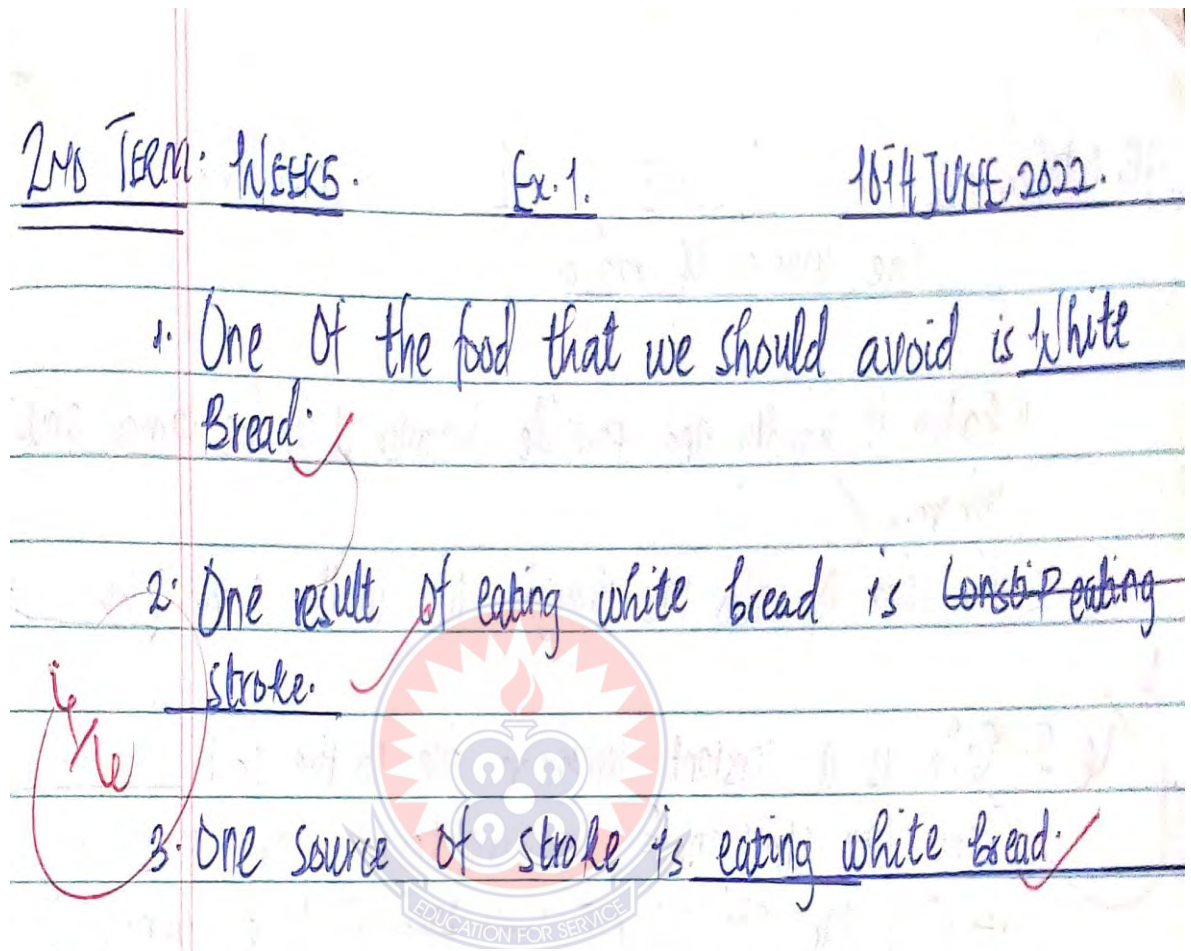 2ND TERM: WEEK5. Ex.1. 16TH JUNE, 2022.
1. One Of the food that we should avoid is White
Bread.
2. One result Of eating white bread is Constipeating
stroke.
6/6
3. One source Of stroke is eating white bread.
EDUCATION FOR SERVICE